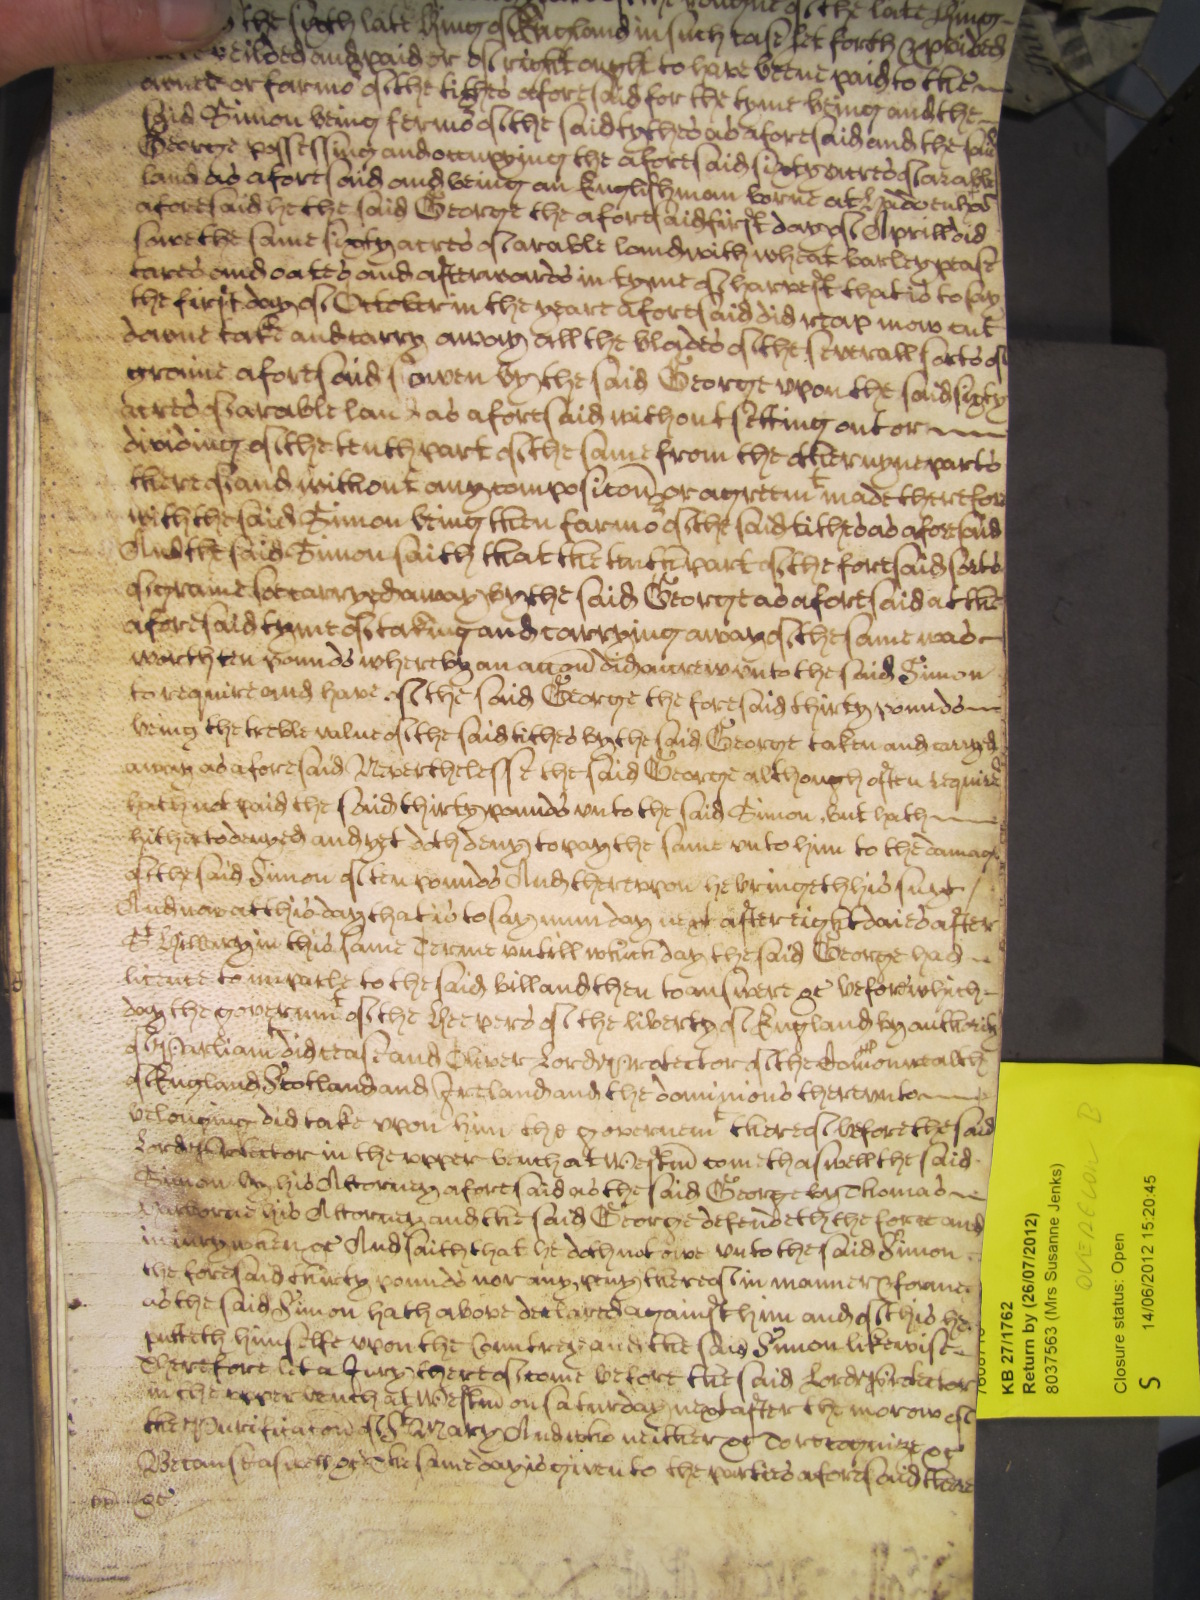 the sixth late King of England in such case set forth & provided
yeilded and paid or of right ought to have beene paid to the
owner or farmor of the tithes aforesaid for the tyme being and the
said Simon being fermor of the said tythes as aforesaid and the said
George possessing and occupying the aforesaid sixty acres of arable
land as aforesaid and being an Englishman borne at
aforesaid he the said George the aforesaid first day of Aprill did
sowe the same sixty acres of arable land with wheat barley pease
tares and oates and afterwards in tyme of harvest that is to say
the first day of October in the yeare aforesaid did reap mow cut
downe take and carry away all the blades of the severall sorts of
graine aforesaid sowen by the said George upon the said sixty
acres of arable land as aforesaid without setting out or
dividing of the tenth part of the same from the other nyne parts
thereof and without any composicon or agreemt made therefore
with the said Simon being then farmor of the said tithes as aforesaid
And the said Simon saith that the tenth part of the foresaid sorts
of graine soe carryed away by the said George as aforesaid at the
aforesaid tyme of taking and carrying away of the same was
worth ten pounds whereby an accon did accrew unto the said Simon
to require and have of the said George the foresaid thirty pounds
being the treble value of the said tithes by the said George taken and carryed
away as aforesaid Neverthelesse the said George although often required
hath not paid the said thirty pounds unto the said Simon but hath
hitherto denyed and yet doth deny to pay the same unto him to the damage
of the said Simon of ten pounds And thereupon he bringeth his suyt /
And now at this day that is to say munday next after eight daies after
St Hillary in this same Terme untill which day the said George had
licence to imparle to the said bill and then to answere &c before which
day the governmt of the Keepers of the liberty of England by authority
of Parliamt did cease and Oliver Lord Protector of the Comonwealth
of England Scotland and Ireland and the dominions thereunto
belonging did take upon him the governemt thereof before the said
Lord Protector in the upper bench at Westm come thaswell the said
Simon by his Attorney aforesaid as the said George by Thomas
his Attorney and the said George defendeth the force and
injury when &c And saith that he doth not owe unto the said Simon
the foresaid thirty pounds nor any peny thereof in manner & forme
as the said Simon hath above declared against him and of this he
putteth himselfe upon the Countrey and the said Simon likewise
Therefore let a Jury thereof come before the said Lord Protector
in the upper bench at Westm on saturday next after the morow of
the Purificacon of St Mary And who neither &c To recognize &c
Because aswell &c The same day is given to the parties aforesaid there
&c
KB 27/1762
Return by (26/07/2012)
8037563 (Mrs Susanne Jenks)
Closure status: Open
S 14/06/2012 15:20:45